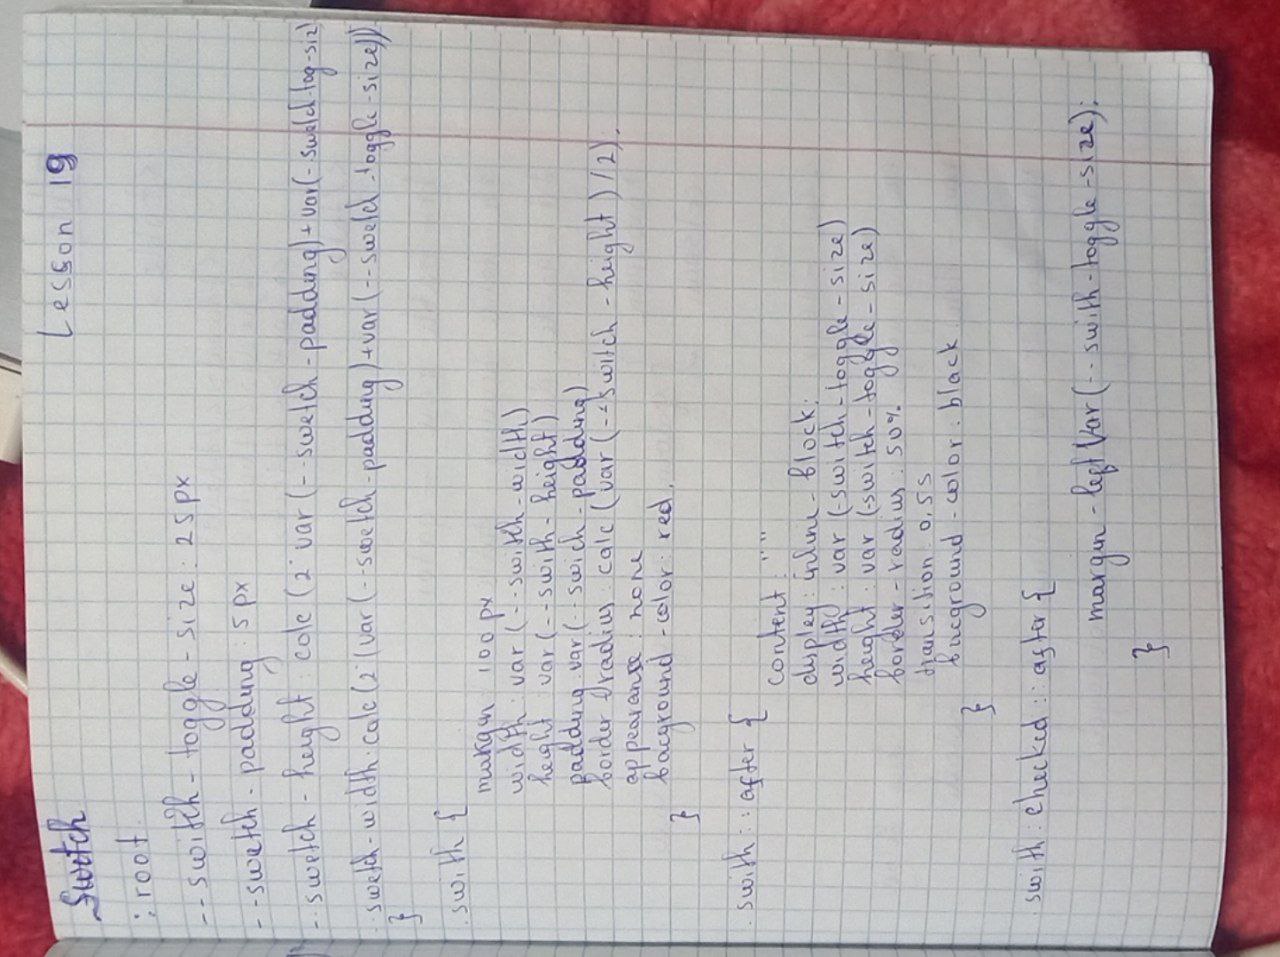 Lesson 19
Switch
:root
--swith-toggle-size: 25px
--swetch-padding: 5px
--swetch-height: calc(2*var(--swetch-padding)+var(-swetch-tog-siz)
--swetch-width: calc(2*(var(--swetch-padding)+var(--swetch-toggle-size)))
}
.swith {
margin: 100px
width: var(--swith-width)
height var(--swith-height)
padding: var(--swich-padding)
border radius: calc(var(--switch-height)/2);
appearanse: none
bacground-color: red;
}
.swith::after {
content: ""
display: inline-block;
width: var(-switch-toggle-size)
height: var(-switch-toggle-size)
border-radius: 50%
transition: 0,5s
bacground-color: black
}
.swith:checked::after {
margin-left var(--swith-toggle-size);
}